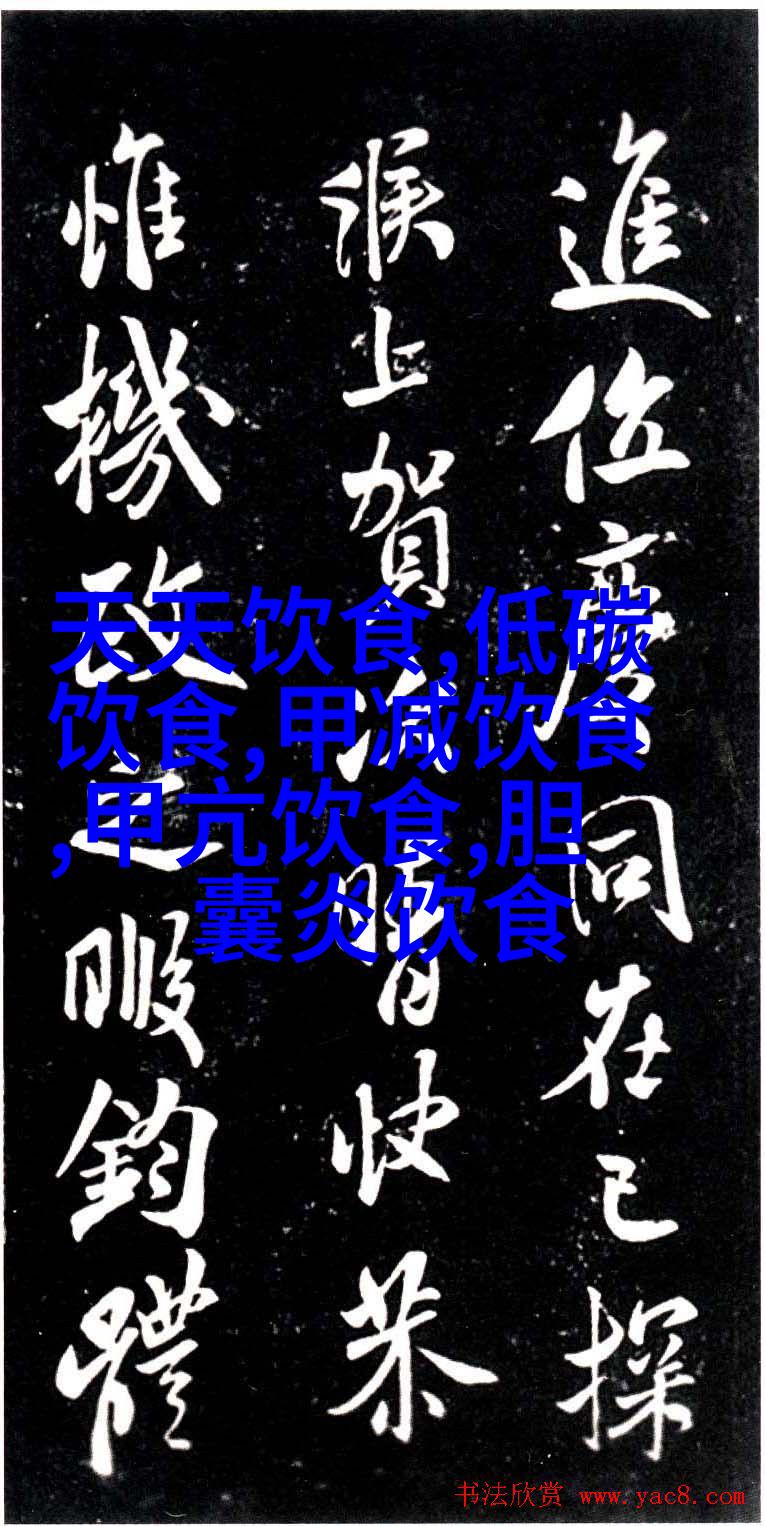 進位慶同在己探
候上賀次瞻快恭
惟機政之暇鈞體
天天饮食,低碳
饮食,甲减饮食
,甲亢饮食,胆
囊炎饮食
书法欣赏 www.yac8.com